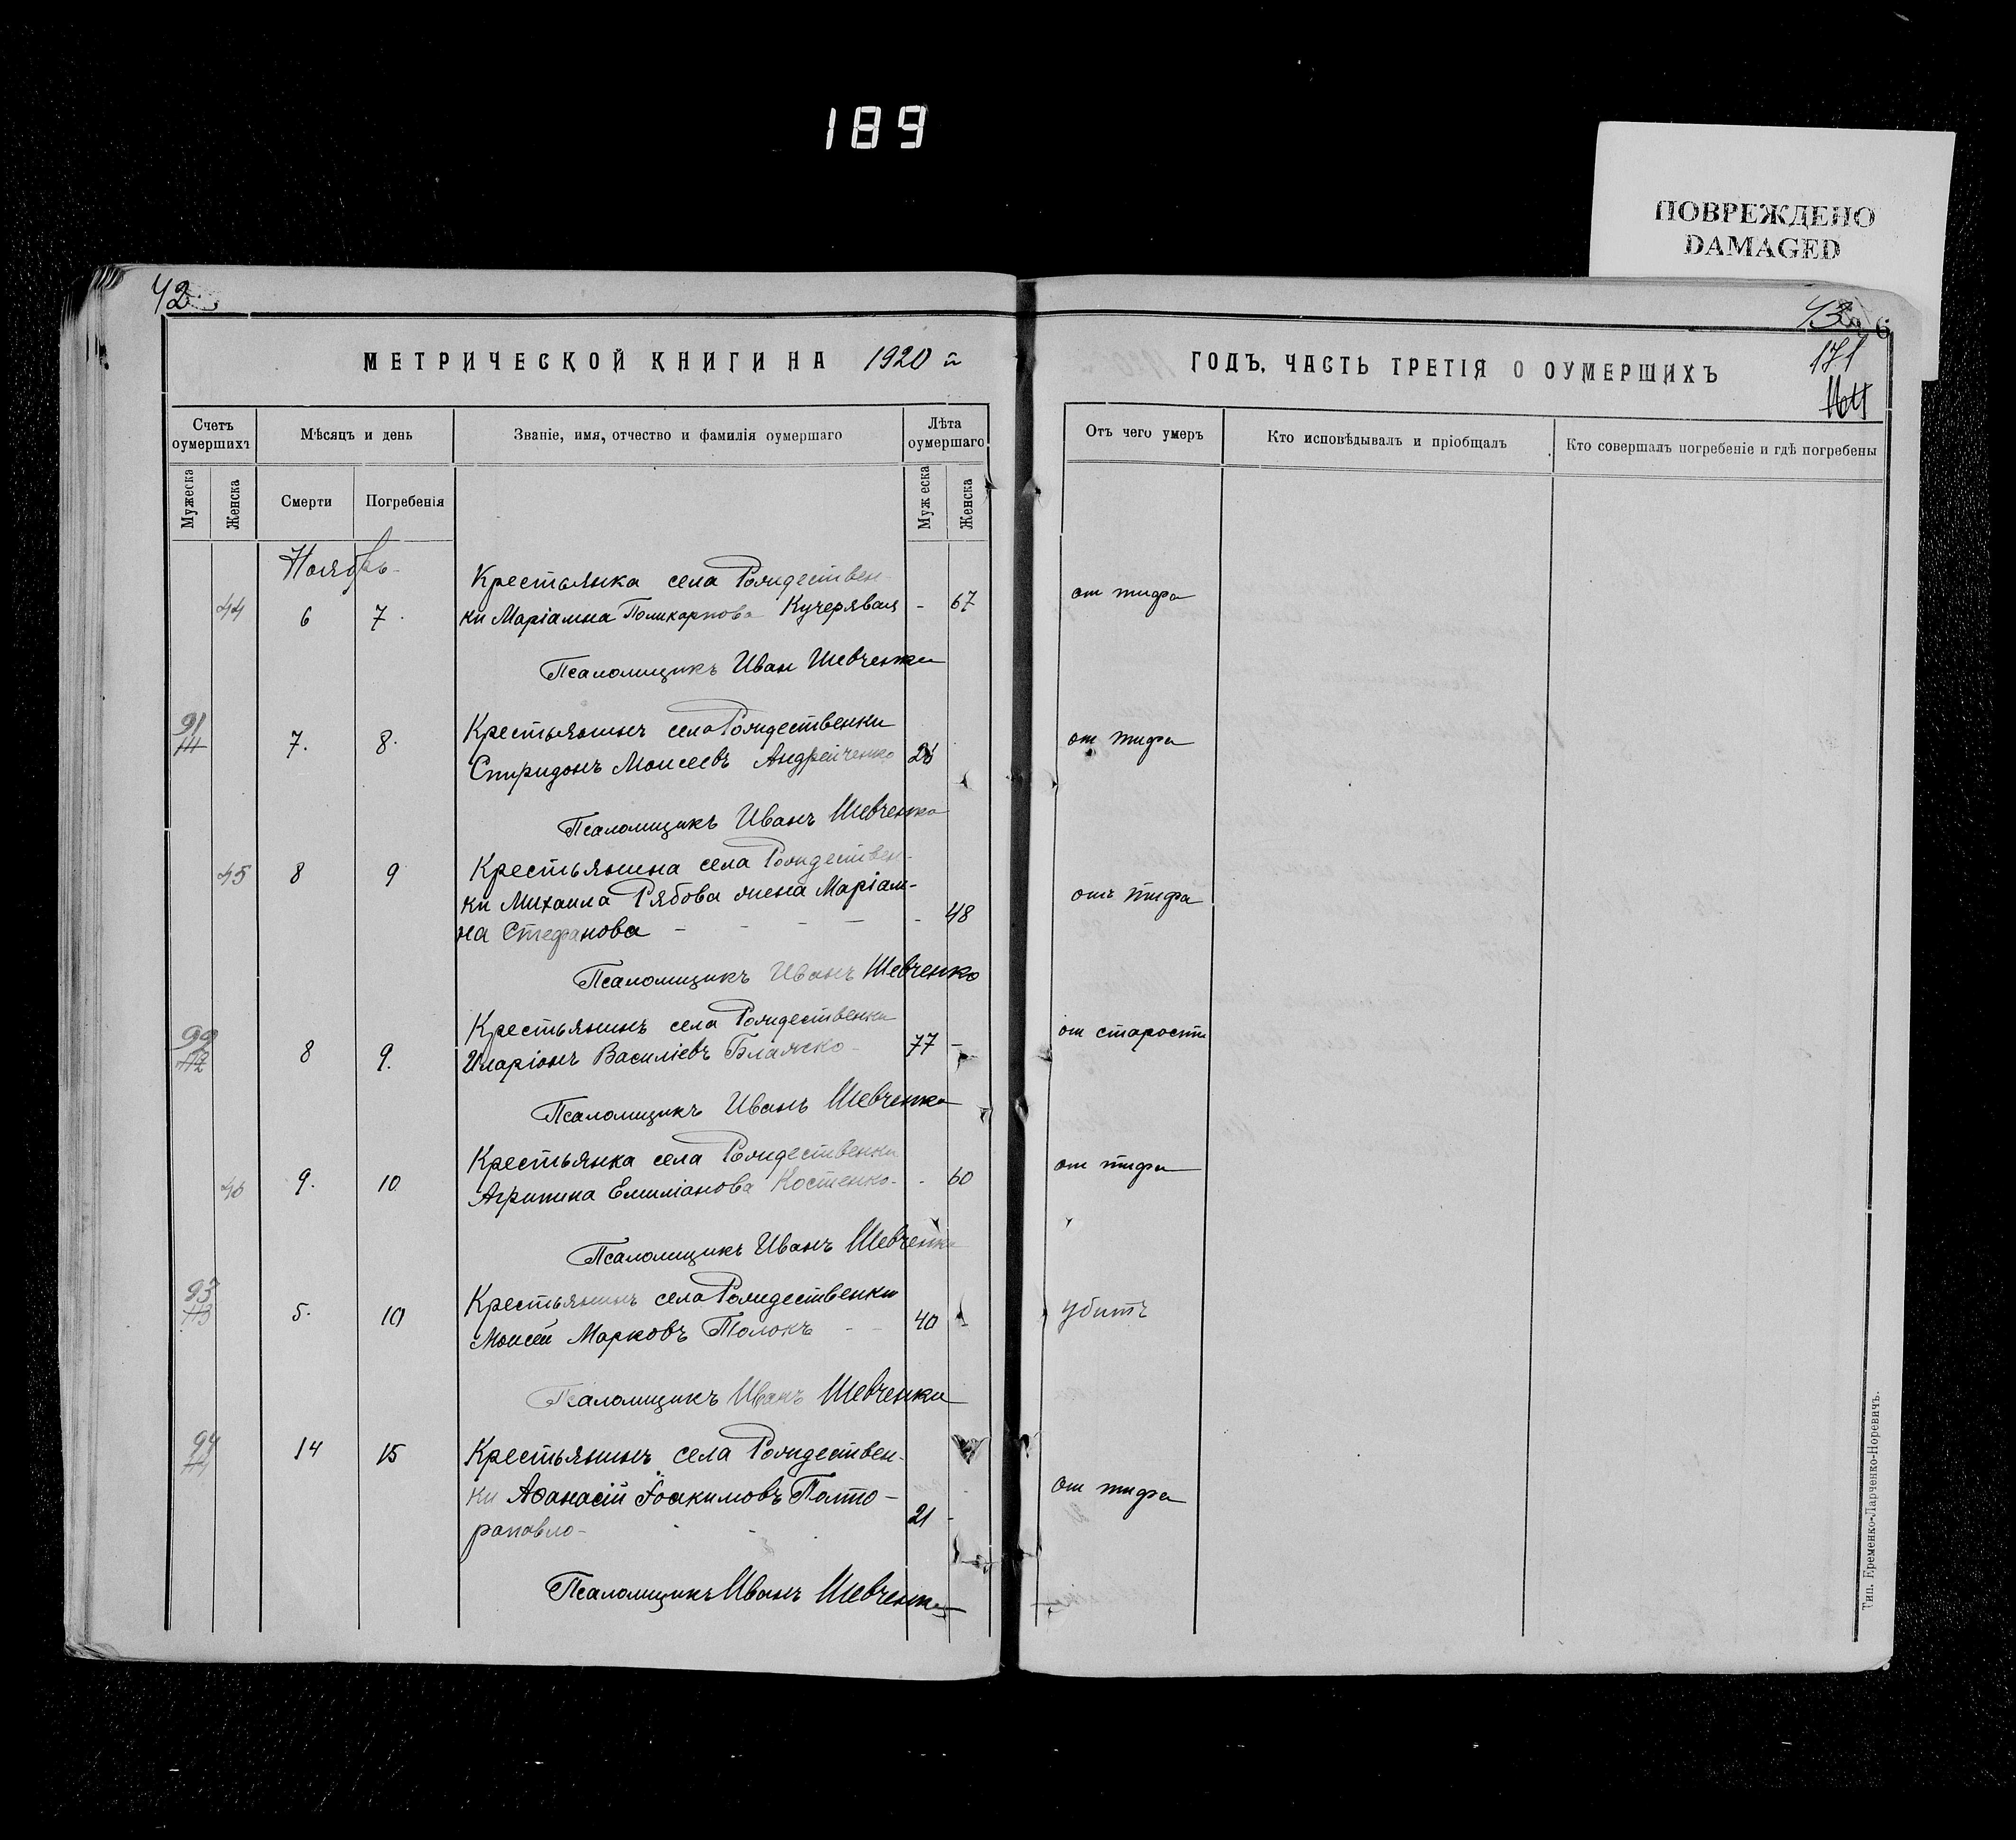 189
ПОВРЕЖДЕНО
DAMAGED
42
43
171
МЕТРИЧЕСКОЙ КНИГИ НА 1920 й
ГОДЪ, ЧАСТЬ ТРЕТІЯ О ОУМЕРШИХЪ
Счетъ оумершихъ
Мѣсяцъ и день
Званіе, имя, отчество и фамилія оумершаго
Лѣта оумершаго
Отъ чего умеръ
Кто исповѣдывалъ и пріобщалъ
Кто совершалъ погребеніе и гдѣ погребены
Мужеска
Женска
Смерти
Погребенія
Мужеска
Женска
Ноябрь
Крестьянка села Рождествен-
44 6 7 ки Маріамна Поликарпова Кучерявая - 67 от тифа
Псаломщикъ Иван Шевченко
91 Крестьянинъ села Рождественки
111 7. 8. Спиридонъ Моисеевъ Андрейченко от тифа
Псаломщикъ Иванъ Шевченко
45 8 9 Крестьянина села Рождествен-
ки Михаила Рябова жена Маріам-
на Стефанова - - - - - 48 отъ тифа
Псаломщикъ Иванъ Шевченко
Крестьянинъ села Рождественки
112 8 9. Иларіонъ Василіевъ Бланско - 77 - от старости
Псаломщикъ Иванъ Шевченко
Крестьянка села Рождественки
46 9. 10 Агрипина Емиліанова Костенко - - 60 от тифа
Псаломщикъ Иванъ Шевченко
93 Крестьянинъ села Рождественки
113 5. 10 Моисей Марковъ Толокъ - - 40 - убитъ
Псаломщикъ Иванъ Шевченко
94 14 15 Крестьянинъ села Рождествен-
ки Аѳанасій Іоакимовъ Полто-
рапавло - - - 21 - от тифа
Псаломщикъ Иванъ Шевченко
Тип. Еременко-Ларченко-Норевичъ.